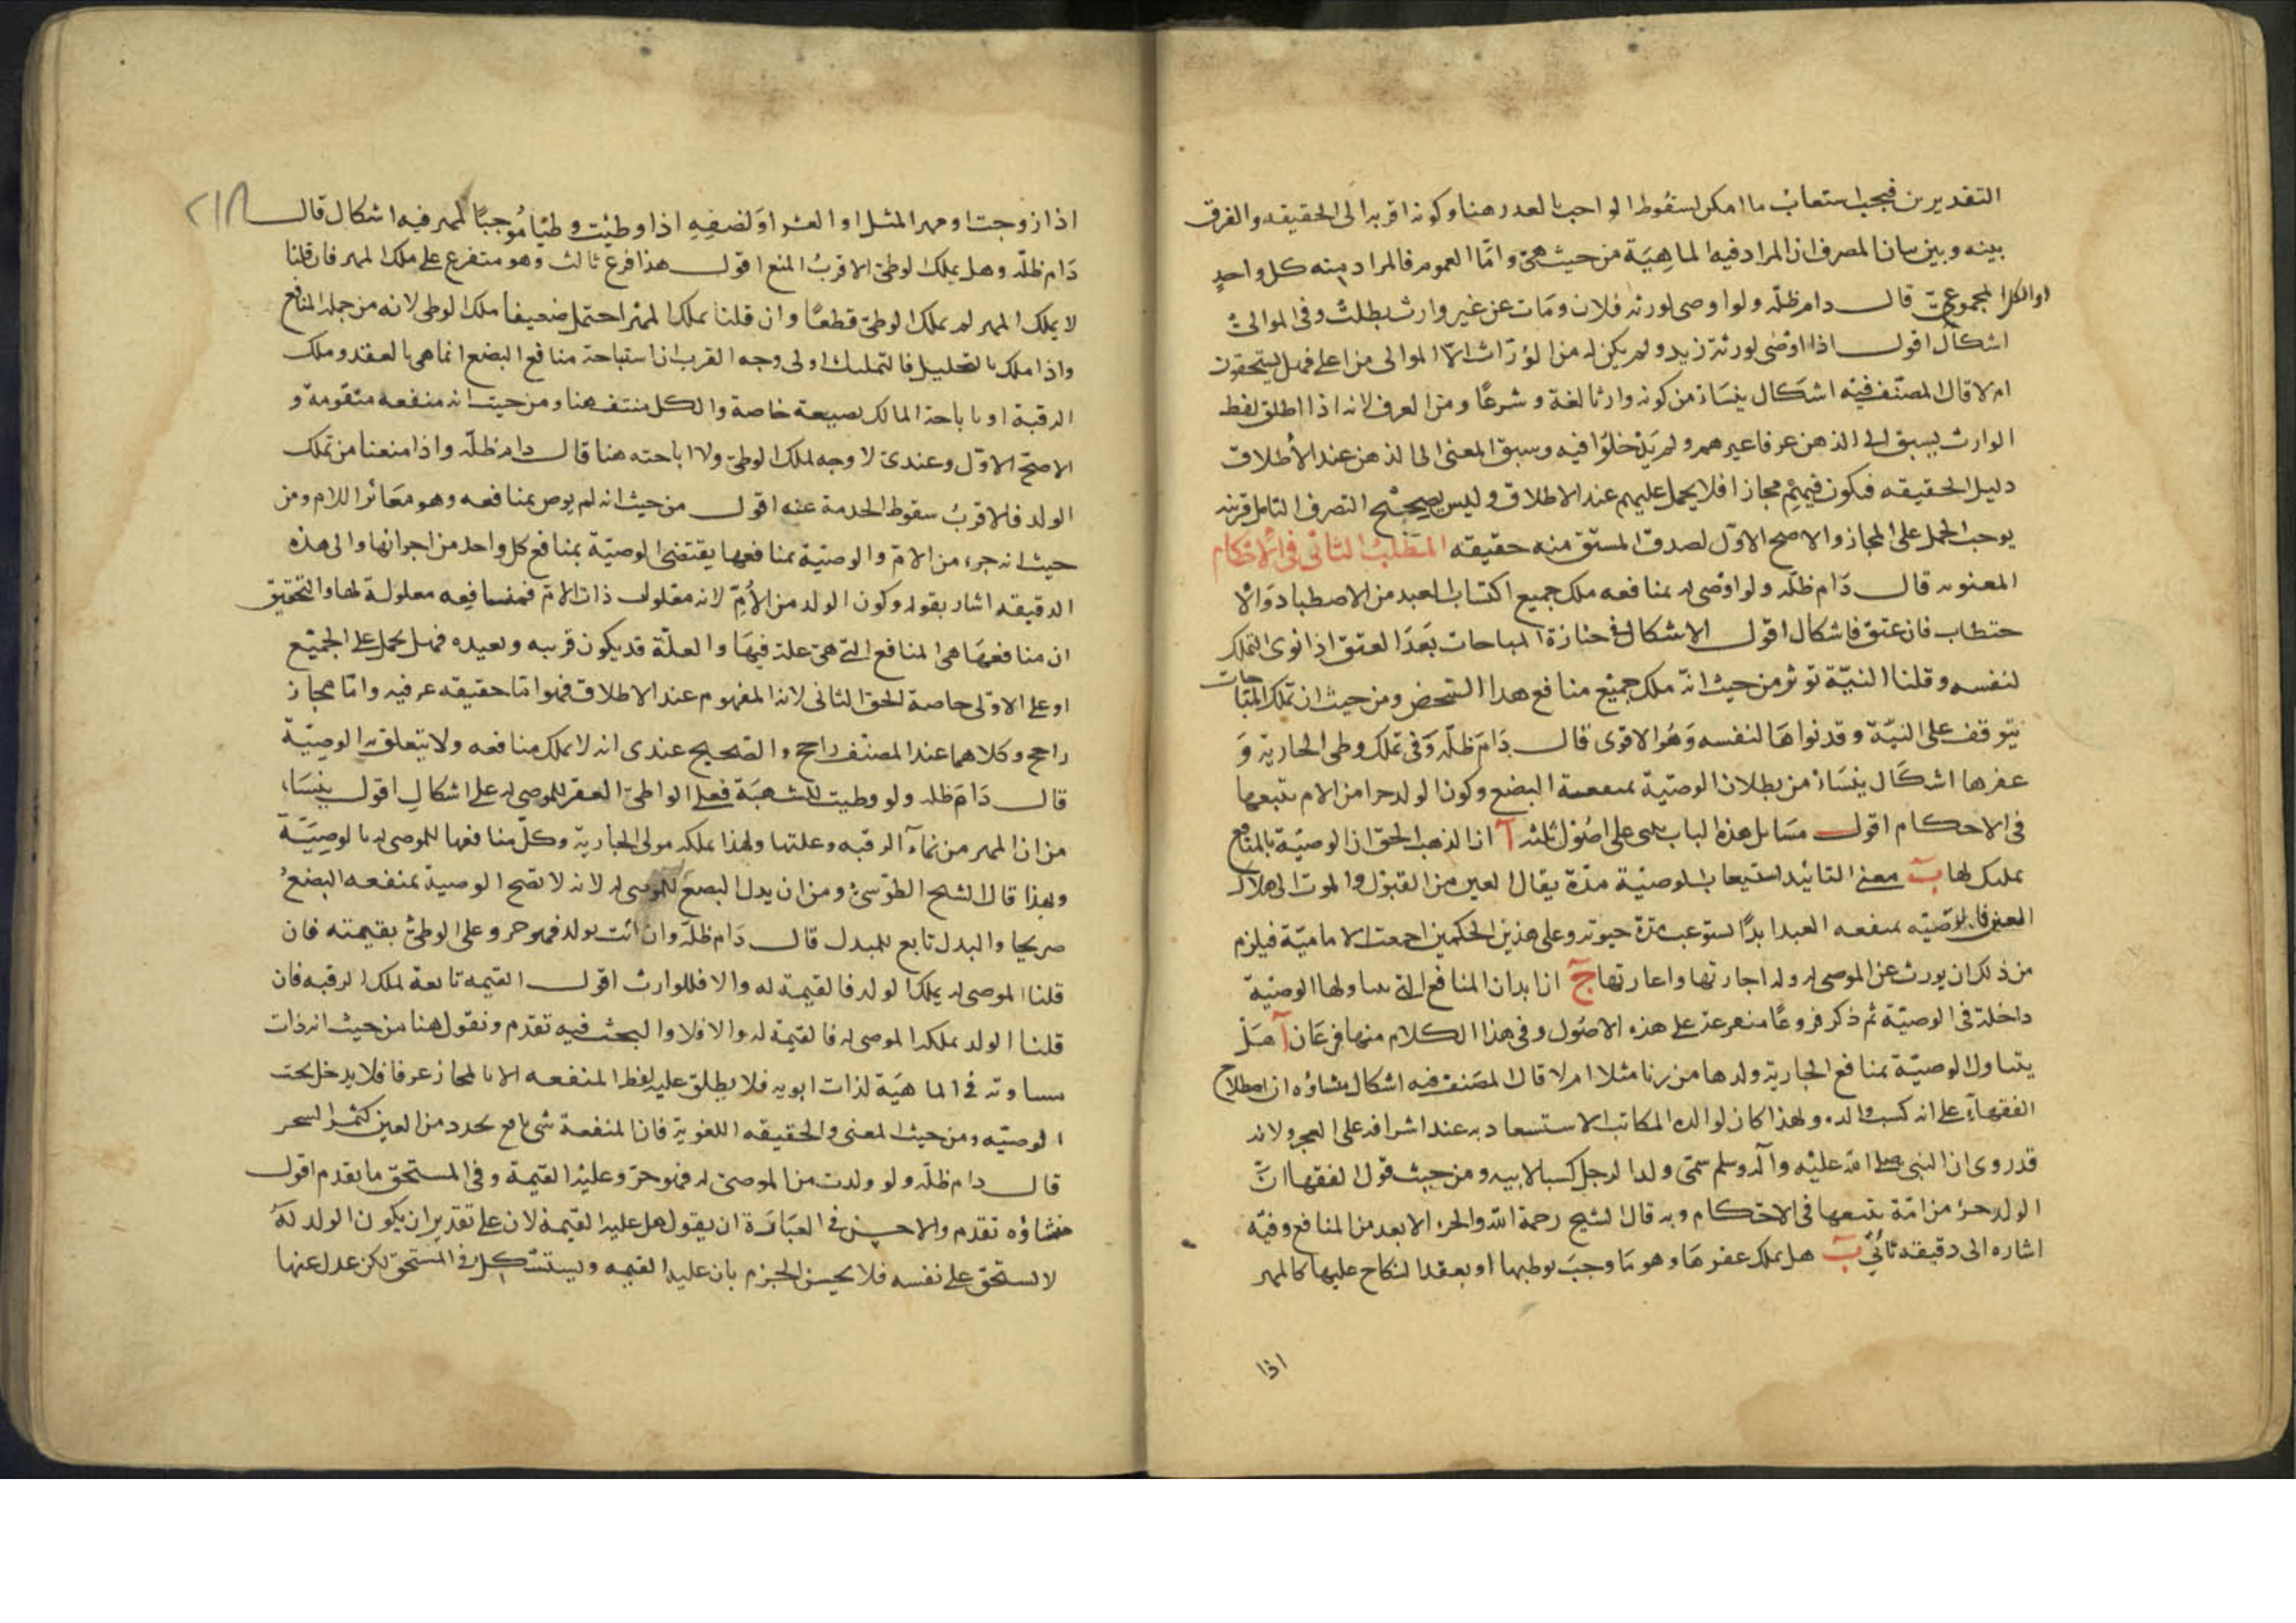 التقديرين فيجب استيعاب ما امكن لسقوط الواجب بالعذر هنا وكونه اقرب الى الحقيقه والفرق
بينه وبين بيان المصرف ان المراد فيه الماهية من حيث هى واما العموم فالمراد منه كل واحد
او الكل المجموعى قال دام ظله ولو اوصى لورثه فلان ومات عن غير وارث بطلت وفى الموالى
اشكال اقول اذا اوصى لورثة زيد ولم يكن له من الوراث الا الموالى من اعلى فهل يستحقون
ام لا قال المصنف فيه اشكال ينشا من كونه وارثا لغة وشرعا ومن العرف لانه اذا اطلق لفظ
الوارث يسبق الى الذهن عرفا غيرهم ولم يدخلوا فيه وسبق المعنى الى الذهن عند الاطلاق
دليل الحقيقه فيكون فيهم مجازا فلا يحمل عليهم عند الاطلاق وليس تصحيح التصرف القابل قرينه
يوجب الحمل على المجاز والاصح الاول لصدق المشتق منه حقيقه المطلب الثانى فى الاحكام
المعنويه قال دام ظله ولو اوصى له بمنافعه ملك جميع اكتساب العبد من الاصطياد والا
حتطاب فان عتق فاشكال اقول الاشكال فى حيازة المباحات بعد العتق اذا نوى التملك
لنفسه وقلنا النية توثر من حيث انه ملك جميع منافع هذا الشخص ومن حيث ان تملك المباحات
يتوقف على النية وقد نواها لنفسه وهو الاقوى قال دام ظله وفى تملك وطى الجاريه و
عقرها اشكال ينشا من بطلان الوصية بمنفعة البضع وكون الولد جزا من الام يتبعها
فى الاحكام اقول مسايل هذه الباب تبنى على اصول ثلثه آ ان المذهب الحق ان الوصية بالمنافع
تمليك لها ب معنى التابيد استيعاب الوصية مدة بقاء العين من القبول والموت الى هلاك
العين فالوصيه بمنفعه العبد ابدا تستوعب مدة حيوته وعلى هذين الحكمين اجمعت الامامية فيلزم
من ذلك ان يورث عن الموصى له وله اجارتها واعارتها ج ان ابدان المنافع التى تناولها الوصية
داخلة فى الوصية ثم ذكر فروعا متفرعة على هذه الاصول وفى هذا الكلام منها فرعان آ هل
يتناول الوصية بمنافع الجارية ولدها من زنا مثلا ام لا قال المصنف فيه اشكال منشاؤه ان اصطلاح
الفقهاء على انه كسب والده ولهذا كان لوالده المكاتب الاستسعا به عند اشرافه على العجز ولانه
قد روى ان النبى صلى الله عليه وآله وسلم سمى ولد الرجل كسبا لابيه ومن حيث قول الفقها ان
الولد جزء من امه يتبعها فى الاحكام وبه قال الشيخ رحمة الله والجزء لا يعد من المنافع وفيه
اشاره الى دقيقه تاتى ب هل يملك عقرها وهو ما وجب بوطيها او بعقد النكاح عليها كالمهر
اذا
٢١٨
اذا زوجت او مهر المثل او العشر او نصفه اذا وطئت وطيا موجبا لمهر فيه اشكال قال
دام ظله وهل يملك الوطى الاقرب المنع اقول هذا فرع ثالث وهو متفرع على ملك المهر فان قلنا
لا يملك المهر لم يملك الوطى قطعا وان قلنا يملك المهر احتمل ضعيفا ملك الوطى لانه من جملة المنافع
واذا ملك بالتحليل فالتمليك اولى وجه القرب ان استباحة منافع البضع انما هى بالعقد وملك
الرقبة او باباحة المالك بصيغة خاصة والكل منتف هنا ومن حيث انه منفعه متقومة و
الاصح الاول وعندى لا وجه لملك الوطى ولا اباحته هنا قال دام ظله واذا منعنا من تملك
الولد فالاقرب سقوط الخدمة عنه اقول من حيث انه لم يوص بمنافعه وهو مغائر اللام ومن
حيث انه جزء من الام والوصية بمنافعها يقتضى الوصية بمنافع كل واحد من اجزائها والى هذه
الدقيقه اشار بقوله وكون الولد من الام لانه معلول ذات الام فمنافعه معلولة لها والتحقيق
ان منافعها هى المنافع التى هى علة فيها والعلة قد يكون قريبه وبعيده فهل يحمل على الجميع
او على الاولى خاصة الحق الثانى لانه المفهوم عند الاطلاق فهو اما حقيقه عرفيه واما مجاز
راجح وكلاهما عند المصنف راجح والصحيح عندى انه لا تملك منافعه ولا يتعلق به الوصية
قال دام ظله ولو وطيت للشهبة فعلى الواطى العقر للموصى له على اشكال اقول ينشا
من ان المهر من نماء الرقبه وعلتها ولهذا يملكه مولى الجارية وكل منافعها للموصى له بالوصية
وبهذا قال الشيخ الطوسى ومن ان بدل البضع للموصى له لانه لا تصح الوصية بمنفعه البضع
صريحا والبدل تابع للمبدل قال دام ظله وان اتت بولد فهو حر وعلى الوطى بقيمته فان
قلنا الموصى له يملك الولد فالقيمة له والا فللوارث اقول القيمه تابعة لملك الرقبه فان
قلنا الولد يملكه الموصى له فالقيمة له والا فلا والبحث فيه تقدم ونقول هنا من حيث انه ذات
مساوته فى الماهية لذات ابويه فلا يطلق عليه لفظ المنفعه الا بالمجاز عرفا فلا يدخل تحت
الوصيه ومن حيث المعنى والحقيقه اللغوية فان المنفعة شى نافع يحدد من العين كثمرة الشجر
قال دام ظله ولو ولدت من الموصى له فهو حر وعليه القيمة وفى المستحق ما تقدم اقول
منشاؤه تقدم والاحسن فى العبارة ان يقول هل عليه القيمة لان على تقدير ان يكون الولد له
لا يستحق على نفسه فلا يحسن الجزم بان عليه القيمه ويستشكل فى المستحق لكن عدل عنها